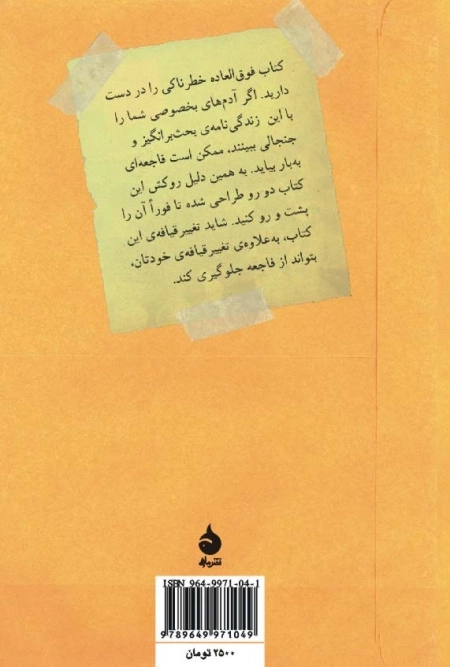 کتاب فوق‌العاده خطرناکی را در دست
دارید. اگر آدم‌های بخصوصی شما را
با این زندگی‌نامه‌ی بحث‌برانگیز و
جنجالی ببینند، ممکن است فاجعه‌ای
به‌بار بیاید. به همین دلیل روکش این
کتاب دو رو طراحی شده تا فوراً آن را
پشت و رو کنید. شاید تغییر قیافه‌ی این
کتاب، به‌علاوه‌ی تغییر قیافه‌ی خودتان،
بتواند از فاجعه جلوگیری کند.
نشر ماهی
ISBN 964-9971-04-1
9789649971049
۲۵۰۰ تومان